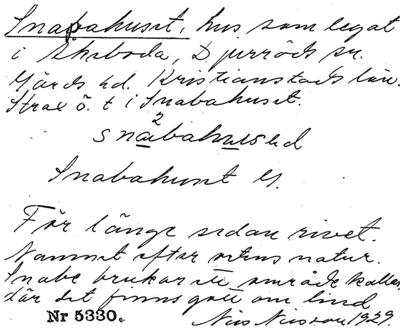 Snabahuset, hus som legat
i Skeboda, Djurröds sn.
Gärds hd. Kristianstads län.
Strax ö. t i Snabahuset.
snabahused
Snabahuset
För länge sedan rivet.
Namnet efter ortens natur.
Snabe brukar ett område kallas,
där det finns gott om lind
Nr 5330. Nils Nilsson 1929